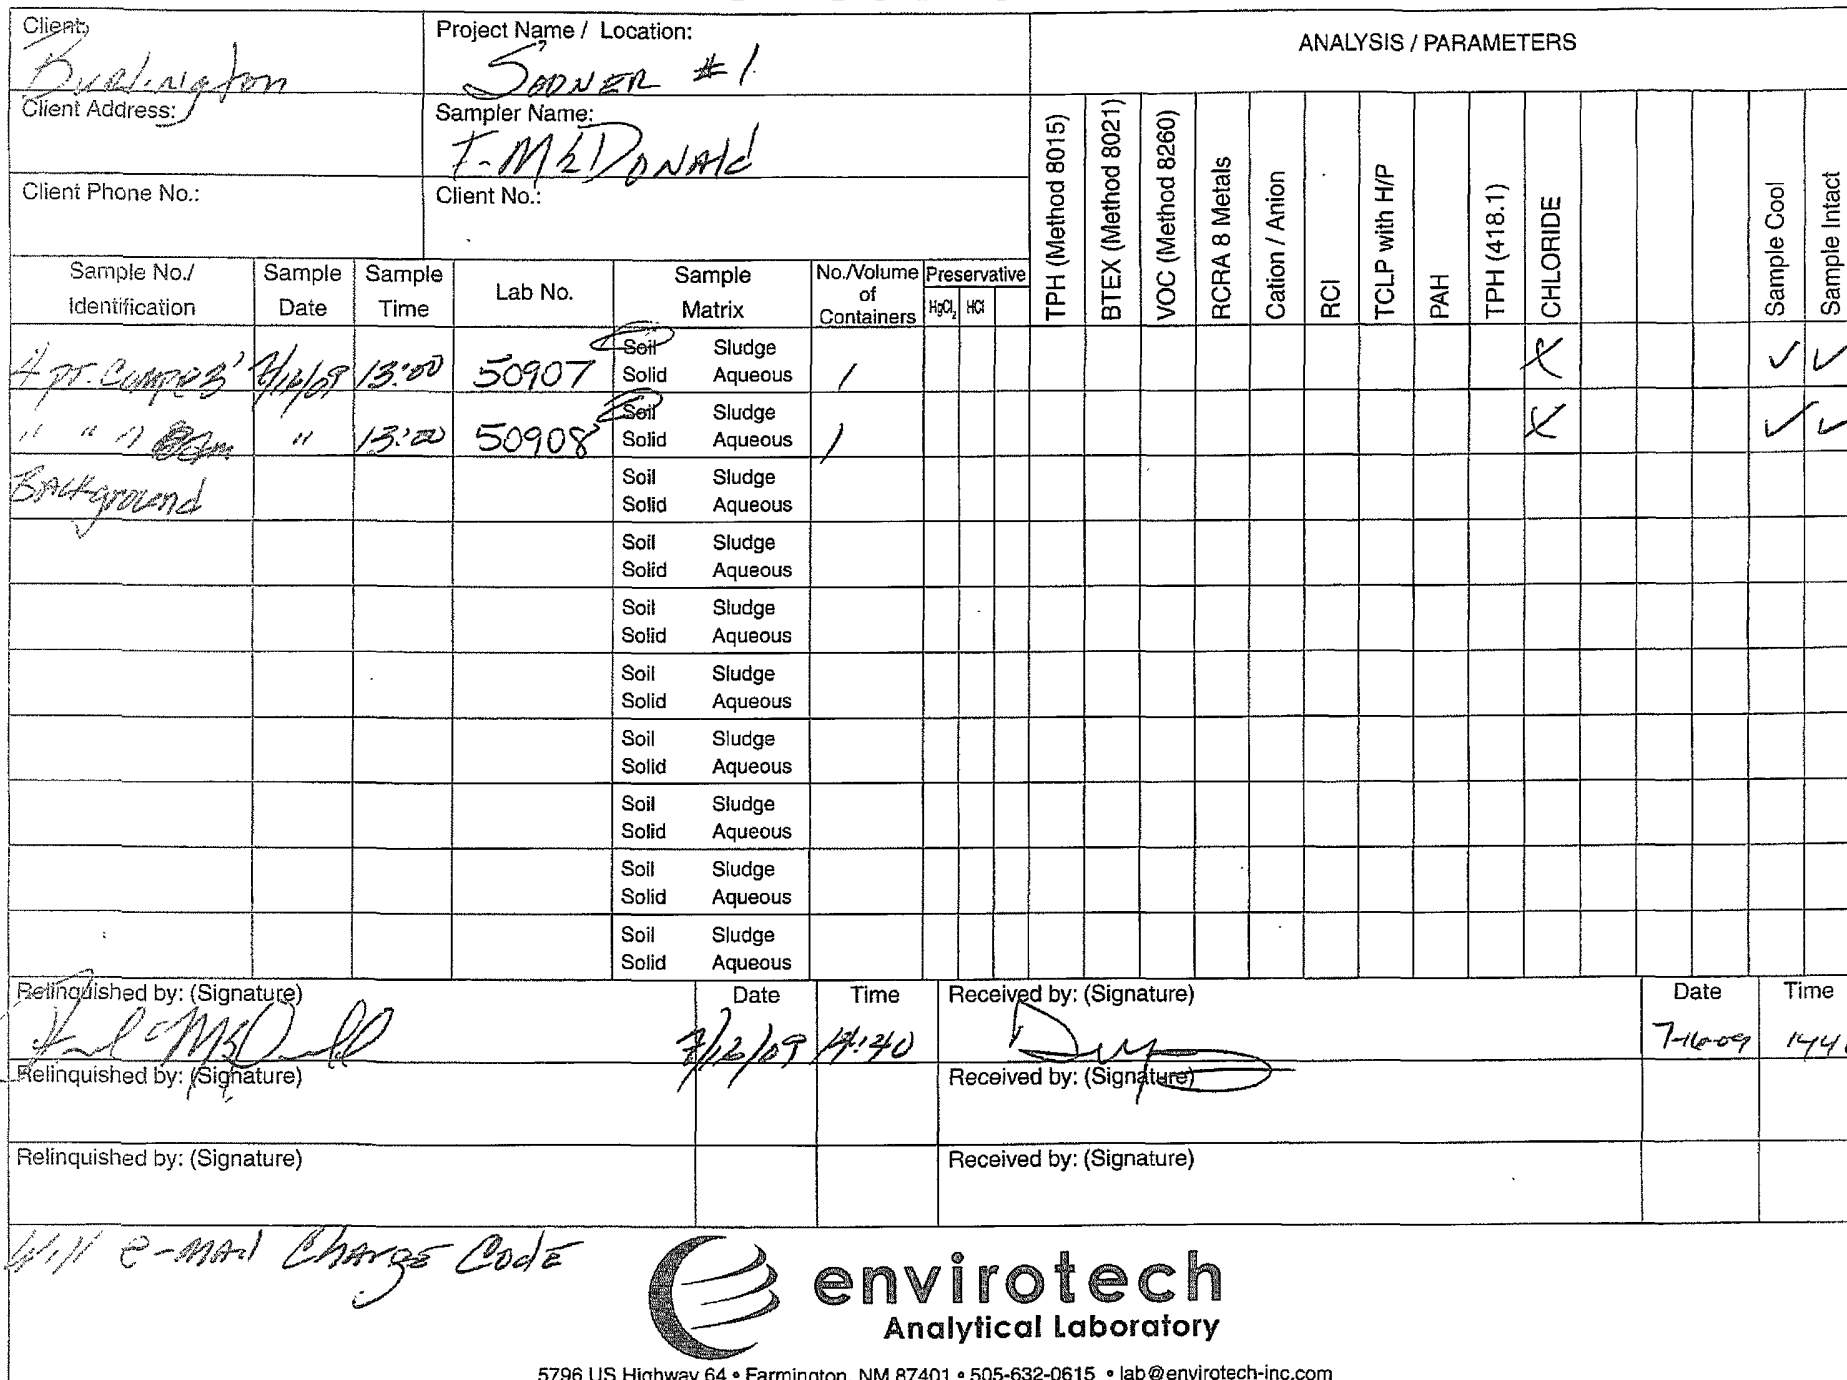 Client:
Burlington
Project Name / Location:
SADNER #1
ANALYSIS / PARAMETERS
Client Address:
Sampler Name:
F. McDONALD
Client Phone No.:
Client No.:
TPH (Method 8015)
BTEX (Method 8021)
VOC (Method 8260)
RCRA 8 Metals
Cation / Anion
RCI
TCLP with H/P
PAH
TPH (418.1)
CHLORIDE
Sample Cool
Sample Intact
Sample No./ Identification
Sample Date
Sample Time
Lab No.
Sample Matrix
No./Volume of Containers
Preservative
HgCl₂ HCl
4 pt. Comp @ 3' 7/16/09 13:00 50907 Soil Sludge Solid Aqueous 1 X ✓ ✓
" " " " 13:00 50908 Soil Sludge Solid Aqueous 1 X ✓ ✓
Background Soil Sludge
Solid Aqueous
Soil Sludge
Solid Aqueous
Soil Sludge
Solid Aqueous
Soil Sludge
Solid Aqueous
Soil Sludge
Solid Aqueous
Soil Sludge
Solid Aqueous
Soil Sludge
Solid Aqueous
Soil Sludge
Solid Aqueous
Relinquished by: (Signature) Date Time Received by: (Signature) Date Time
7/16/09 14:40 7-16-09 1440
Relinquished by: (Signature) Received by: (Signature)
Relinquished by: (Signature) Received by: (Signature)
Will e-mail Charge Code
envirotech
Analytical Laboratory
5796 US Highway 64 • Farmington, NM 87401 • 505-632-0615 • lab@envirotech-inc.com